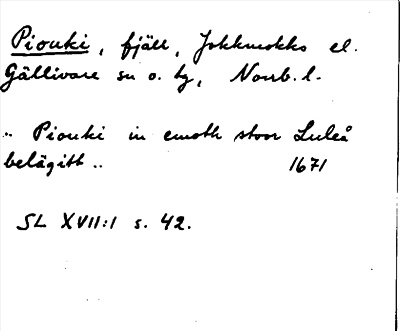 Piouki, fjäll, Jokkmokks el.
Gällivare sn o. tg, Norrb. l.
.. Piouki in emoth stoor Luleå
belägitt .. 1671
SL XVII:1 s. 42.